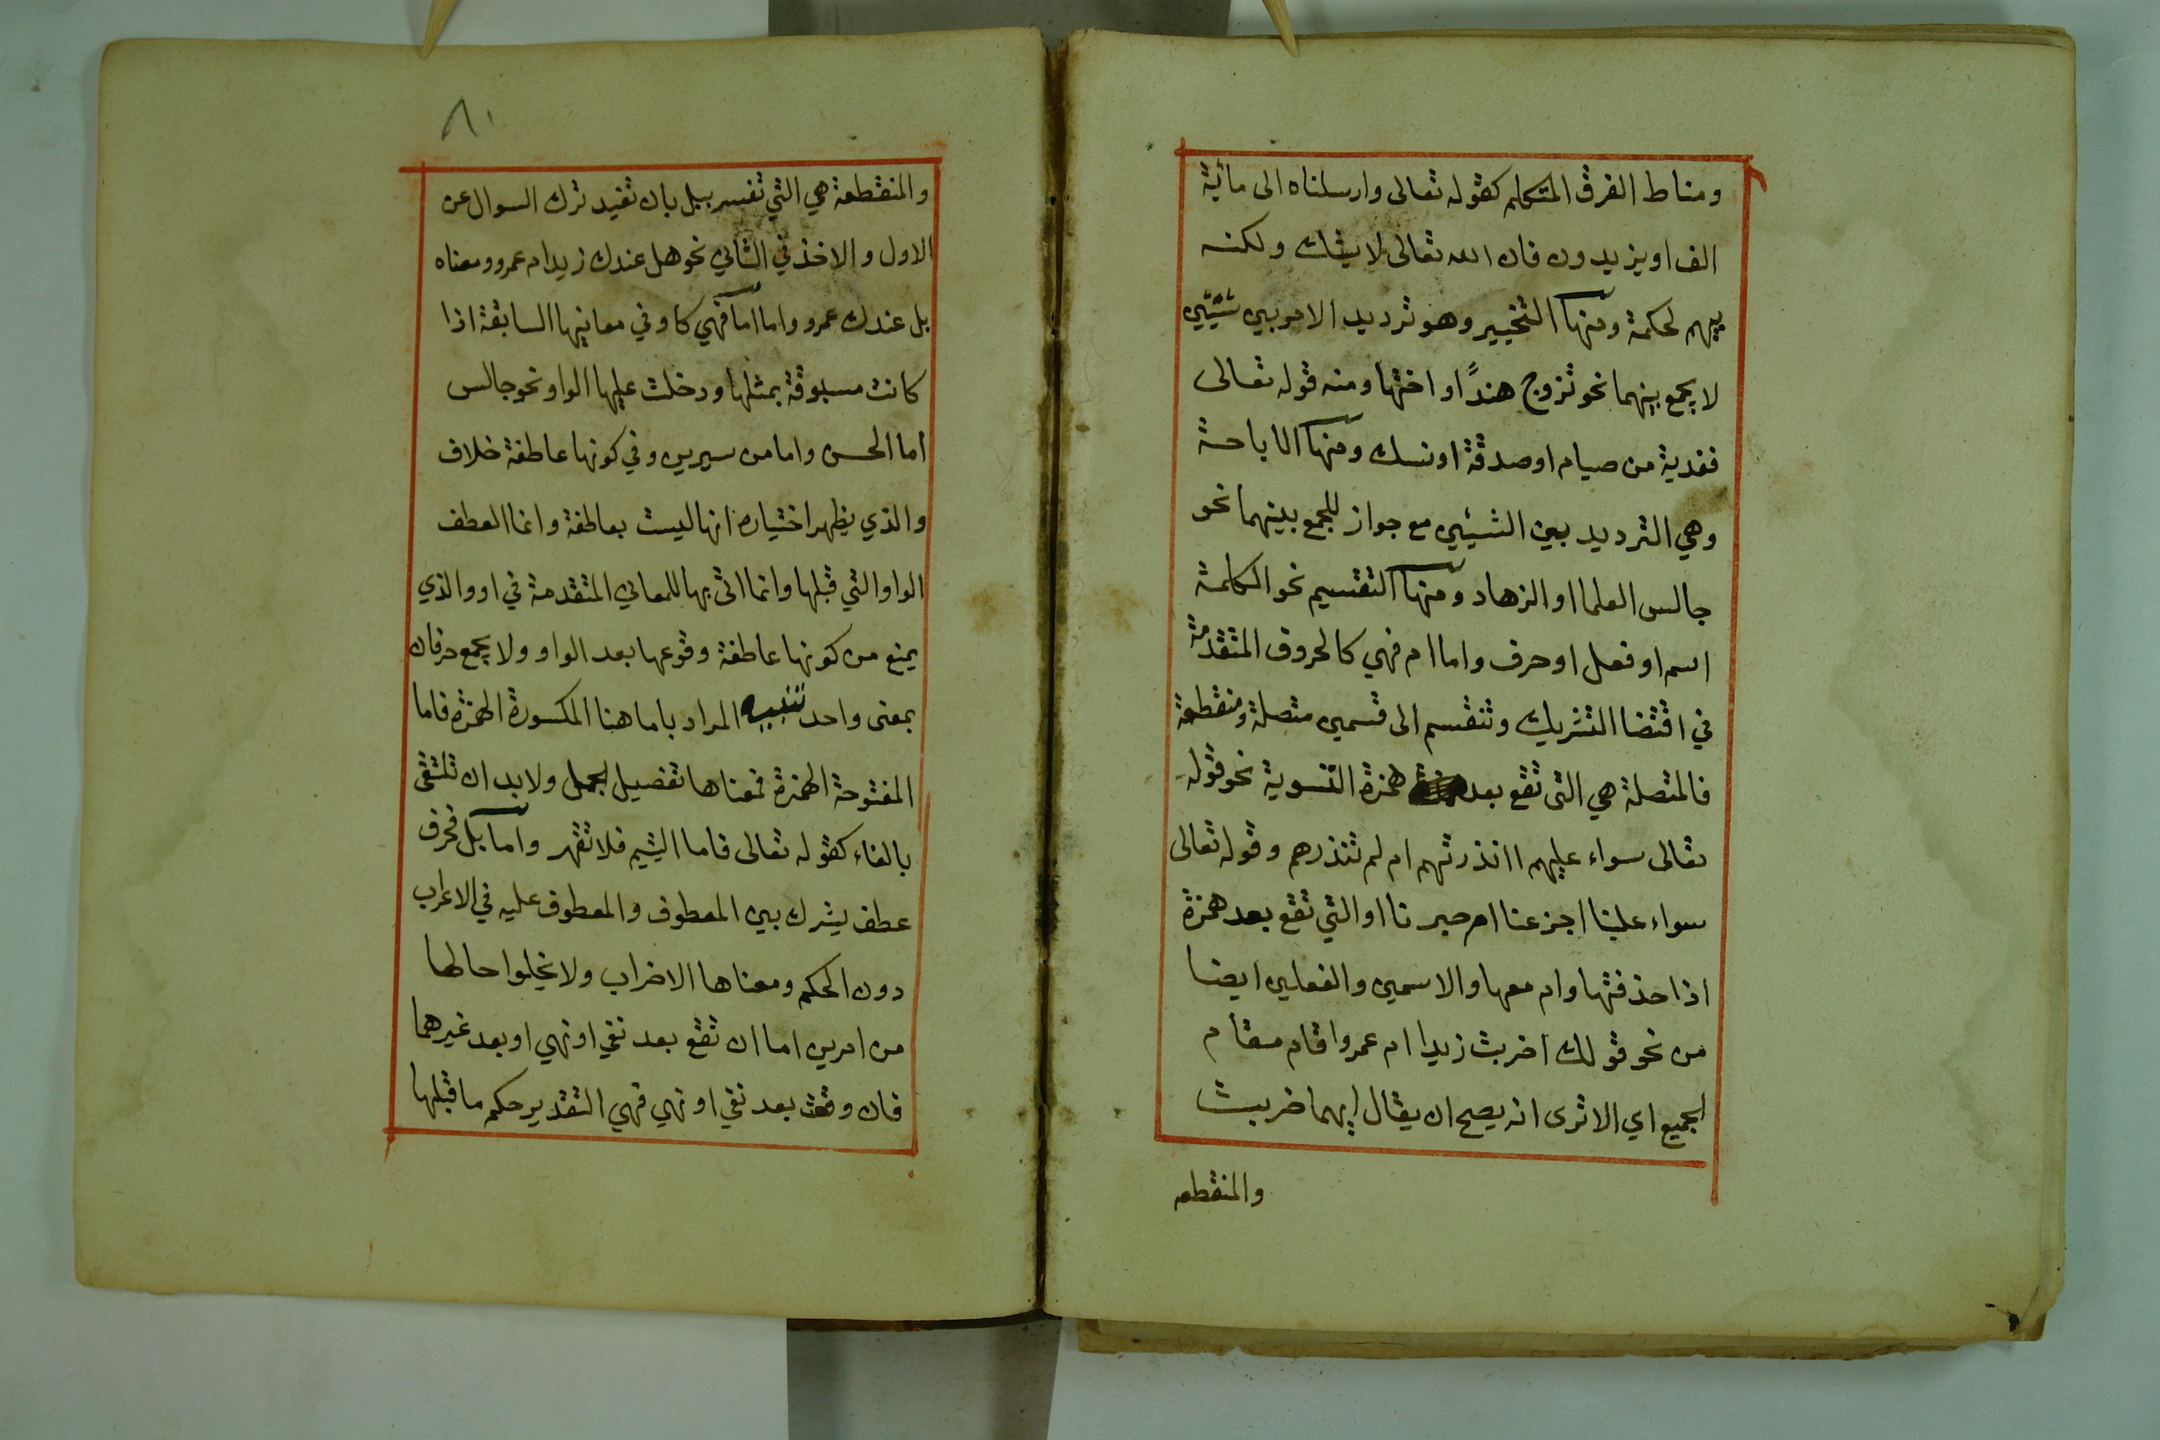 ومناط الفرق المتكلم كقوله تعالى وارسلناه الى مائية
الف او يزيدون فان الله تعالى لا يشك ولكنه
يبهم لحكمة ومنها التخيير وهو ترديد الامر بين شيئين
لا يجمع بينهما نحو تزوج هنداً او اختها ومنه قوله تعالى
ففدية من صيام او صدقة او نسك ومنها الاباحة
وهي الترديد بين الشيئين مع جواز للجمع بينهما نحو
جالس العلما او الزهاد ومنها التقسيم نحو الكلمة
اسم او فعل او حرف واما ام فهي كالحروف المتقدمة
في اقتضا التشريك وتنقسم الى قسمين متصلة ومنقطعة
فالمتصلة هي التى تقع بعد همزة التسوية نحو قوله
تعالى سواء عليهم اانذرتهم ام لم تنذرهم وقوله تعالى
سواء علينا اجزعنا ام صبرنا او التي تقع بعد همزة
اذا حذفتها وام معها والاسمين والفعلين ايضا
من نحو قولك اضربت زيدا ام عمروا قام مقام
الجميع اي الا ترى انه يصح ان يقال ايهما ضربت
والمنقطعه
٨١
والمنقطعة هي التي تفسر ببل بان تفيد ترك السوال عن
الاول والاخذ في الثاني نحو هل عندك زيد ام عمرو ومعناه
بل عندك عمرو واما اما فهي كاو في معانيها السابقة اذا
كانت مسبوقة بمثلها ودخلت عليها الواو نحو جالس
اما الحسن واما من سيرين وفي كونها عاطفة خلاف
والذي يظهر اختياره انها ليست بعاطفة وانما العطف
الواو التي قبلها وانما اتى بها للمعاني المتقدمة في او والذي
يمنع من كونها عاطفة وقوعها بعد الواو ولا يجمع حرفان
بمعنى واحد تنبيه المراد باما هنا المكسورة الهمزة فاما
المفتوحة الهمزة فمعناها تفصيل الجمل ولا بد ان تلتقى
بالفاء كقوله تعالى فاما اليتيم فلا تقهر واما بل فحرف
عطف يشرك بين المعطوف والمعطوف عليه في الاعراب
دون الحكم ومعناها الاضراب ولا يخلوا حالها
من امرين اما ان تقع بعد نفي او نهي او بعد غيرهما
فان وقعت بعد نفي او نهي فهي التقدير حكم ما قبلها